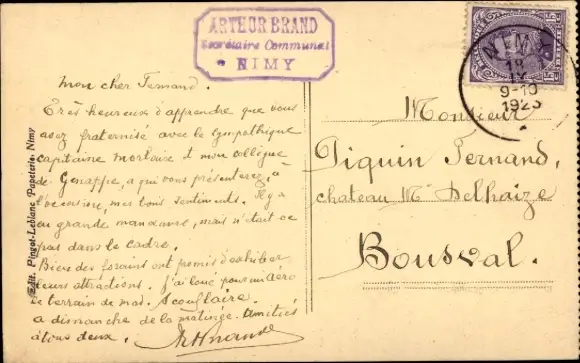 ARTHUR BRAND
Secrétaire Communal
NIMY
NIMY
9-10
1923
Mon cher Fernand.
Très heureux d'apprendre que vous
avez fraternisé avec le sympathique
capitaine et mon collègue
de Genappe, à qui vous présenterez, à
l'occasion, mes bons sentiments. Il y a
au grande, mais n'était ce
pas dans le cadre.
Bien des forains ont promis d'exhiber
leurs attractions. J'ai loué pour un Aéro
le terrain de
à dimanche de la matinée. Amitiés
à tous deux.
Monsieur
Piquin Fernand,
chateau Mr Delhaize
Bousval.
Edit. Pingot-Leblanc Papeterie-Nimy